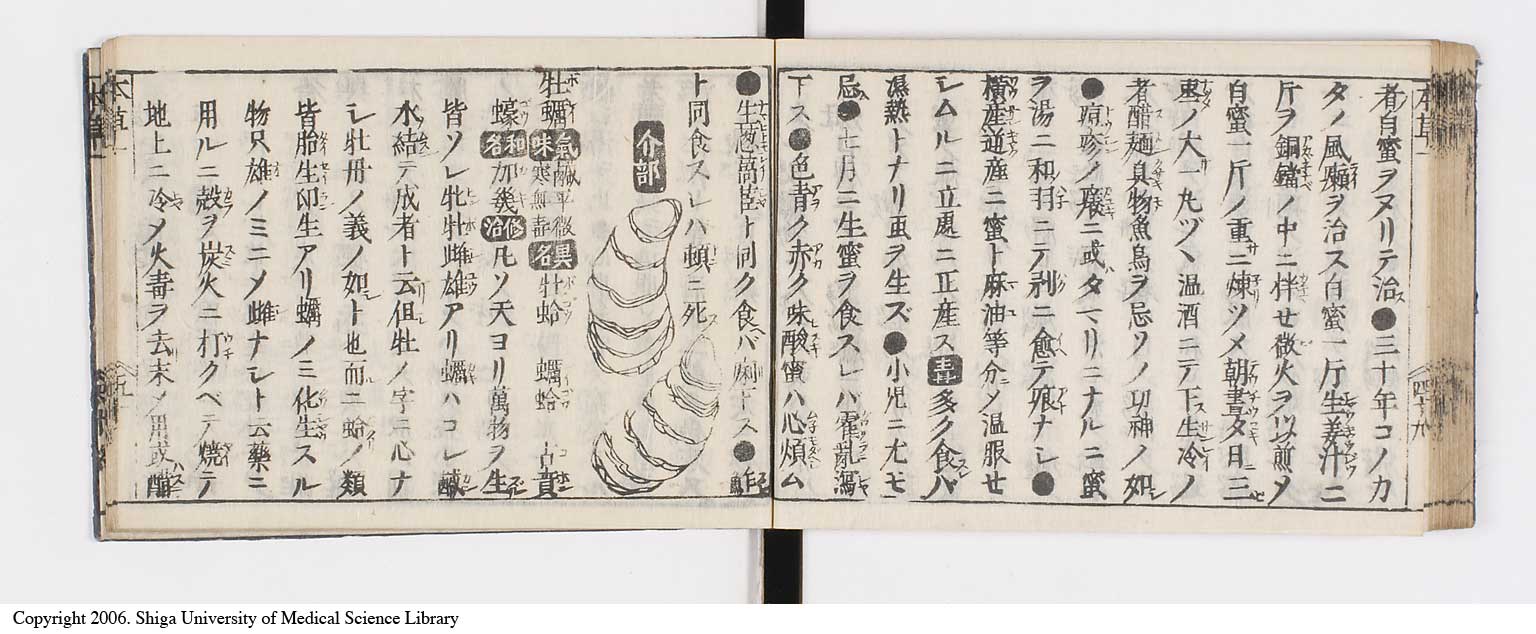 者白蜜ヲヌリテ治ス●三十年コノカ
タノ風癩ヲ治ス白蜜一斤生姜汁二
斤ヲ銅鐺ノ中ニ拌せ微火ヲ以煎メ
白蜜一斤ノ重ニ煉ツメ朝晝夕日ニ三
棗ノ大一丸ヅヽ温酒ニテ下ス生冷ノ
者醋麺臭物魚鳥ヲ忌ソノ功神ノ如シ
●痘疹ノ癢ニ或タマリニナルニ蜜
ヲ湯ニ和羽ニテ刷ニ愈テ痕ナシ●
横産逆産ニ蜜ト麻油等分メ温服せ
シムルニ立處ニ正産ス 毒 多ク食バ
濕熱トナリ虫ヲ生ズ●小児ニ尤モ
忌●七月ニ生蜜ヲ食スレバ霍乱瀉
下ス●色青ク赤ク味酸蜜ハ心煩ム
●生葱萵苣ト同ク食ヘバ痢下ス●鮓
ト同食スレバ頓ニ死ス
介部
牡蠣 氣味 鹹平微寒無毒 異名 牡蛤 蠣蛤 古賁
蠔 和名 加幾 修治 凡ソ天ヨリ萬物ヲ生ズ
皆ソレ牝牡雌雄アリ蠣ハコレ鹹
水結テ成者ト云但牡ノ字ニ心ナ
シ牡丹ノ義ノ如ト也而ニ蛤ノ類
皆胎生卵生アリ蠣ノミ化生スル
物只雄ノミニメ雌ナシト云藥ニ
用ルニ殻ヲ炭火ニ打クベテ焼テ
地上ニ冷メ火毒ヲ去末メ用或醋
Copyright 2006. Shiga University of Medical Science Library